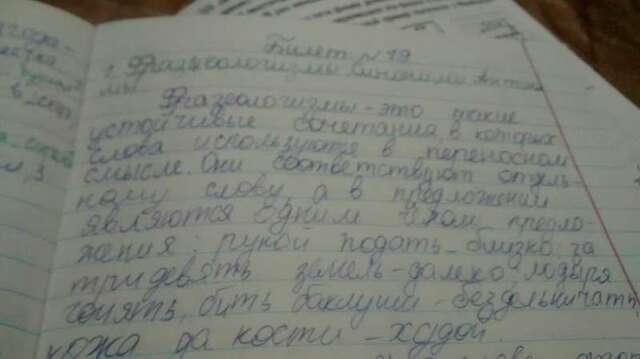 Билет №19
1. Фразеологизмы. Синонимы. Антони
мы
Фразеологизмы - это такие
устойчивые сочетания, в которых
слова используются в переносном
смысле. Они соответствуют отдель-
ному слову, а в предложении
являются одним членом предло-
жения: рукой подать - близко; за
тридевять земель - далеко, лодыря
гонять, бить баклуши - бездельничать,
кожа да кости - худой.